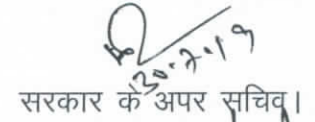 30.7.19
सरकार के अपर सचिव।